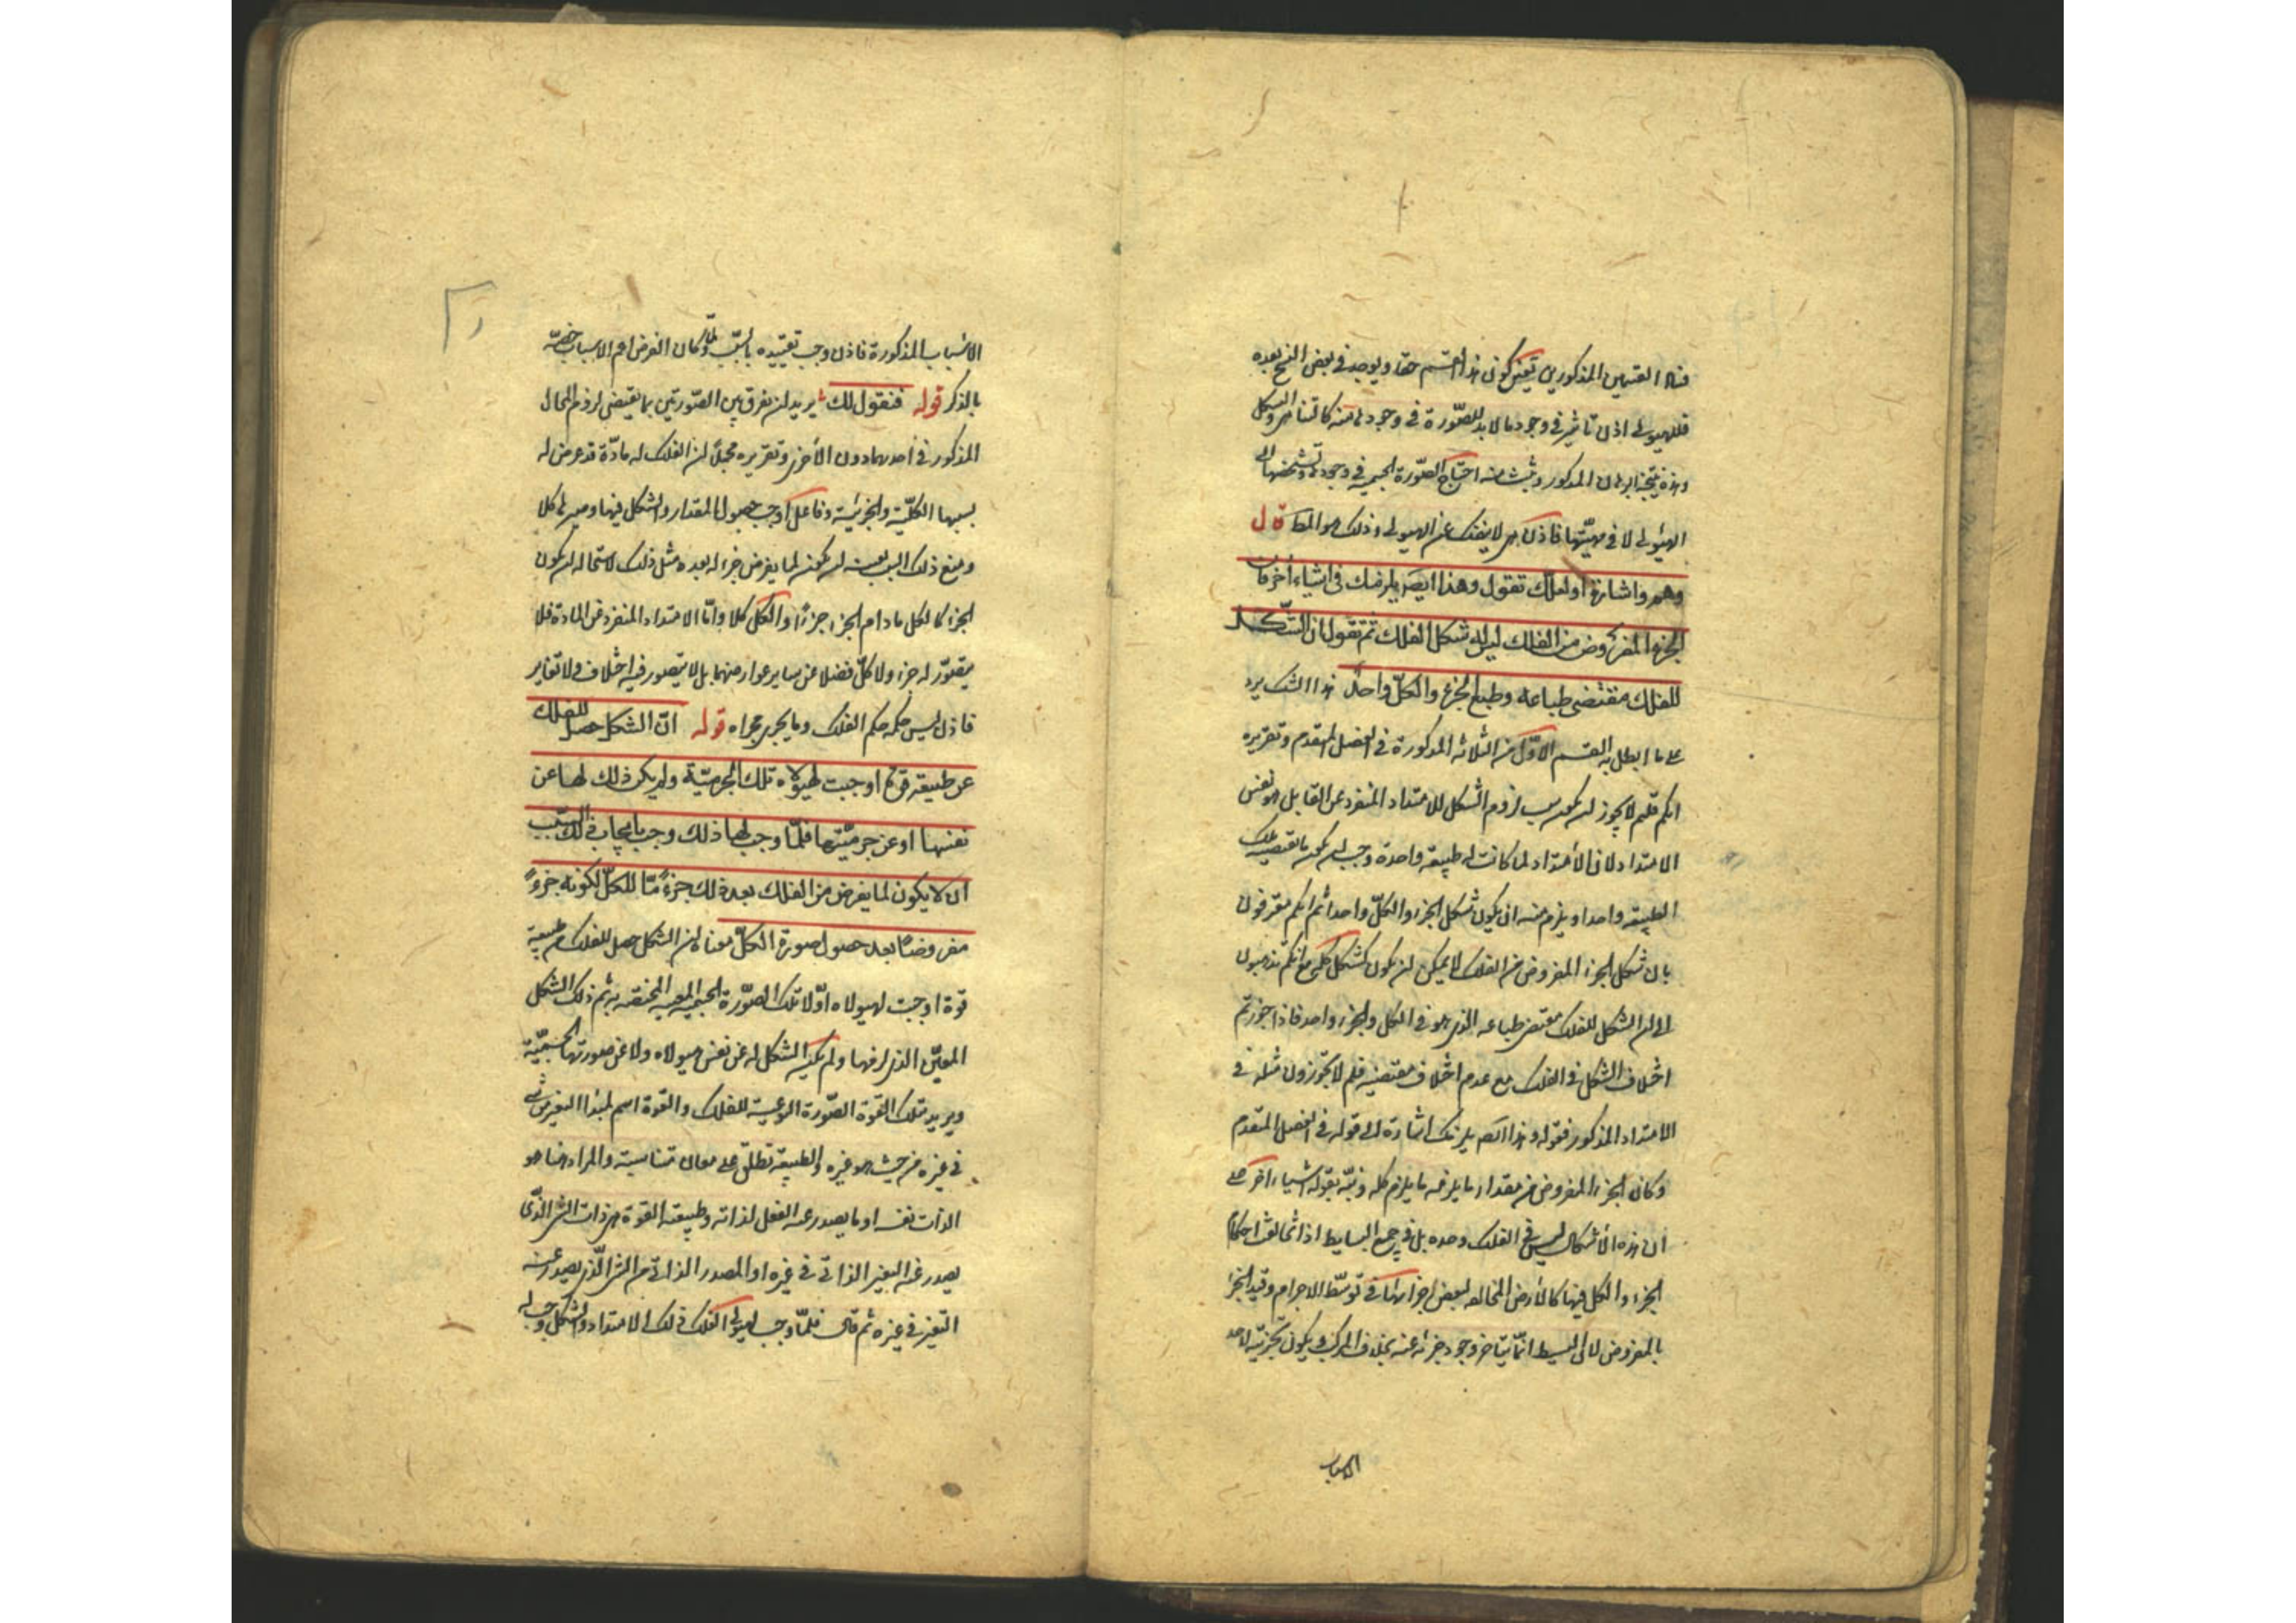 فساد القسمين المذكورين تعين كون هذا القسم حقا ويوجد في بعض النسخ بعده
فللهيولى اذن تاثير في وجود ما لا بد للصورة في وجودها منه كالتناهي والتشكل
وهذه نتيجة البرهان المذكور وثبت منه احتياج الصورة الجسمية في وجودها وتشخصها الى
الهيولى لا في مهيتها فاذن هي لا ينفك عن الهيولى وذلك هو المط قال
وهم واشارة او لعلك تقول وهذا ايضا يلزمك في اشياء اخر فان
الجزء المفروض من الفلك ليس له شكل الفلك ثم تقول ان الشكل
للفلك مقتضى طباعه وطبع الجزء والكل واحد هذا الشك يرد
على ما ابطل به القسم الاول من الثلاثة المذكورة في الفصل المتقدم وتقريره
انكم قلتم لا يجوز ان يكون سبب لزوم الشكل للامتداد المنفرد عن القابل هو نفس
الامتداد لان الامتداد لما كانت له طبيعة واحدة وجب ان يكون ما تقتضيه تلك
الطبيعة واحدا ويلزم منه ان يكون شكل الجزء والكل واحدا ثم انكم معترفون
بان شكل الجزء المفروض من الفلك لا يمكن ان يكون كشكل كله مع انكم تذهبون
الى ان الشكل للفلك مقتضى طباعه الذي هو في الكل والجزء واحد فاذا جوزتم
اختلاف الشكل في الفلك مع عدم اختلاف مقتضيه فلم لا تجوزون مثله في
الامتداد المذكور فقوله وهذا ايضا يلزمك اشارة الى قوله في الفصل المتقدم
وكان الجزء المفروض من مقدار ما يلزمه ما يلزم كله ونبه بقوله اشياء اخر على
ان هذه الاشكال ليس في الفلك وحده بل في جميع البسايط اذا تخالف احكام
الجزء والكل فيها كالارض المخالفة لبعض اجزائها في توسط الاجرام وقيد الجزء
بالمفروض لان البسيط انما يتاخر وجود جزئه عنه بخلاف المركب ويكون تجزيته لاحد
الاسباب
الاسباب المذكورة فاذن وجب تقييده بالسبب ولما كان الفرض اعم الاسباب خصه
بالذكر قوله فنقول لك يريد ان يفرق بين الصورتين بما يقتضي لزوم المحال
المذكور في احدهما دون الاخرى وتقريره مجملا ان الفلك له مادة قد عرض له
بسببها الكلية والجزئية وفاعل اوجب حصول المقدار والشكل فيها وصيرها كلا
ومنع ذلك السبب بعينه ان يكون لما يفرض جزء له بعده مثل ذلك لاستحالة ان يكون
الجزء كالكل ما دام الجزء جزءا والكل كلا واما الامتداد المنفرد عن المادة فلا
يتصور له جزء ولا كل فضلا عن ساير عوارضهما بل لا يتصور فيه اختلاف ولا تغاير
فاذن ليس حكمه حكم الفلك وما يجري مجراه قوله ان الشكل حصل للفلك
عن طبيعة قوة اوجبت لهيولاه تلك الجرمية ولم يكن ذلك لها عن
نفسها او عن جرميتها فلما وجب لها ذلك وجب بايجاب ذلك السبب
ان لا يكون لما يفرض من الفلك بعد ذلك جزءا ما للكل لكونه جزءا
مفروضا بعد حصول صورة الكل معناه ان الشكل حصل للفلك من طبيعة
قوة اوجبت لهيولاه اولا تلك الصورة الجسمية المعينة المختصة به ثم ذلك الشكل
المعين الذي لزمها ولم يكن الشكل له عن نفس هيولاه ولا عن صورتها الجسمية
ويريد بتلك القوة الصورة النوعية للفلك والقوة اسم لمبدا التغير من شيء
في غيره من حيث هو غيره والطبيعة تطلق على معان متناسبة والمراد هنا هو
الذات نفسه او ما يصدر عنه الفعل لذاته وطبيعة القوة هي ذات الشيء الذي
يصدر عنه التغير الذاتي في غيره او المصدر الذاتي من الشيء الذي يصدر عنه
التغير في غيره ثم قال فلما وجب لهيولى الفلك ذلك الامتداد والشكل وجب له